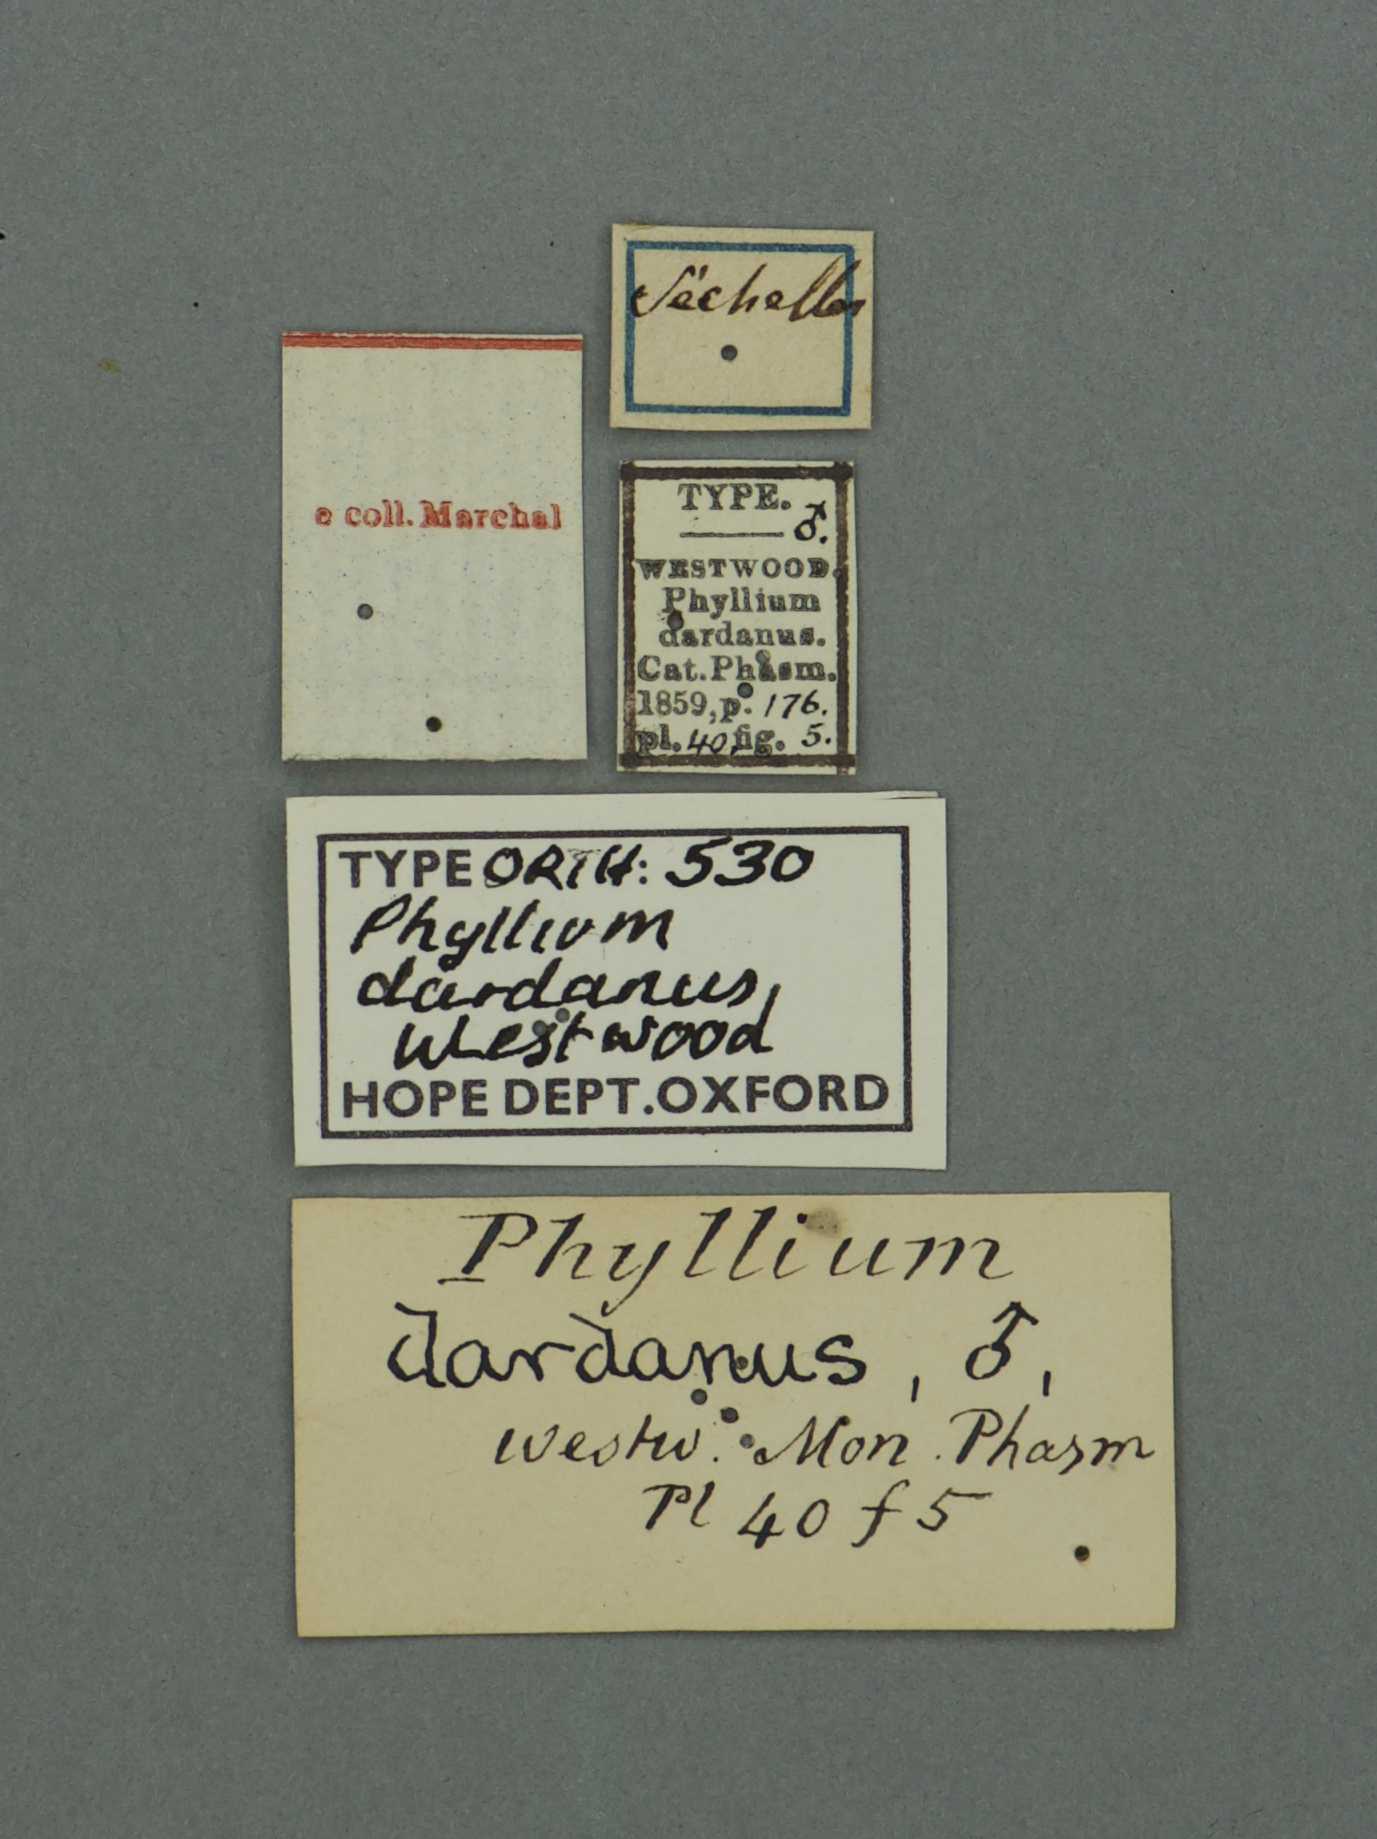 Séchelles
e coll. Marchal
TYPE.
♂.
WESTWOOD.
Phyllium
dardanus.
Cat. Phasm.
1859, p. 176.
pl. 40, fig. 5.
TYPE ORTH: 530
Phyllium
dardanus,
Westwood
HOPE DEPT. OXFORD
Phyllium
dardanus, ♂,
Westw. Mon. Phasm
Pl 40 f 5